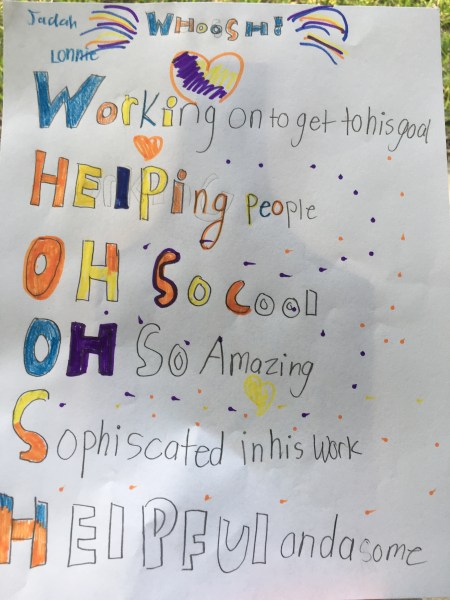 Jadah WHOOSH!
Lonnie
Working on to get to his goal
HElPing people
OH So cool
OH So Amazing
Sophiscated in his Work
HElPFUl andasome